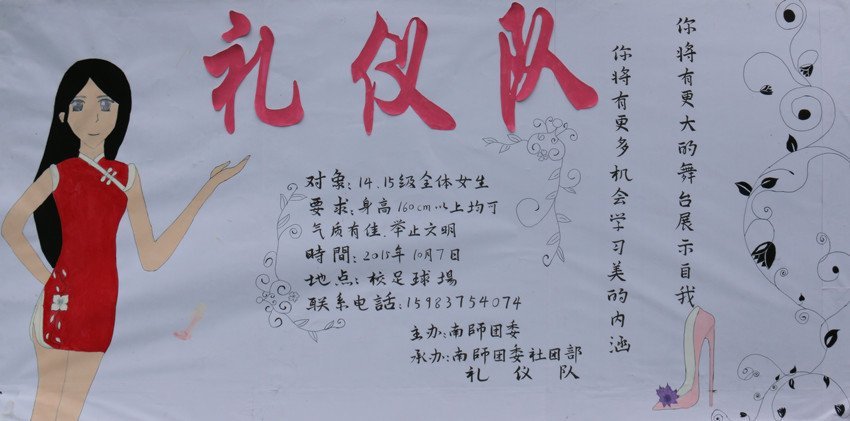 礼仪队
你将有更大的舞台展示自我
你将有更多机会学习美的内涵
对象:14.15级全体女生
要求:身高160cm以上均可
气质有佳.举止文明
時間:2015年10月7日
地点:校足球場
联系电話:15983754074
主办:南師团委
承办:南師团委社团部
礼仪队